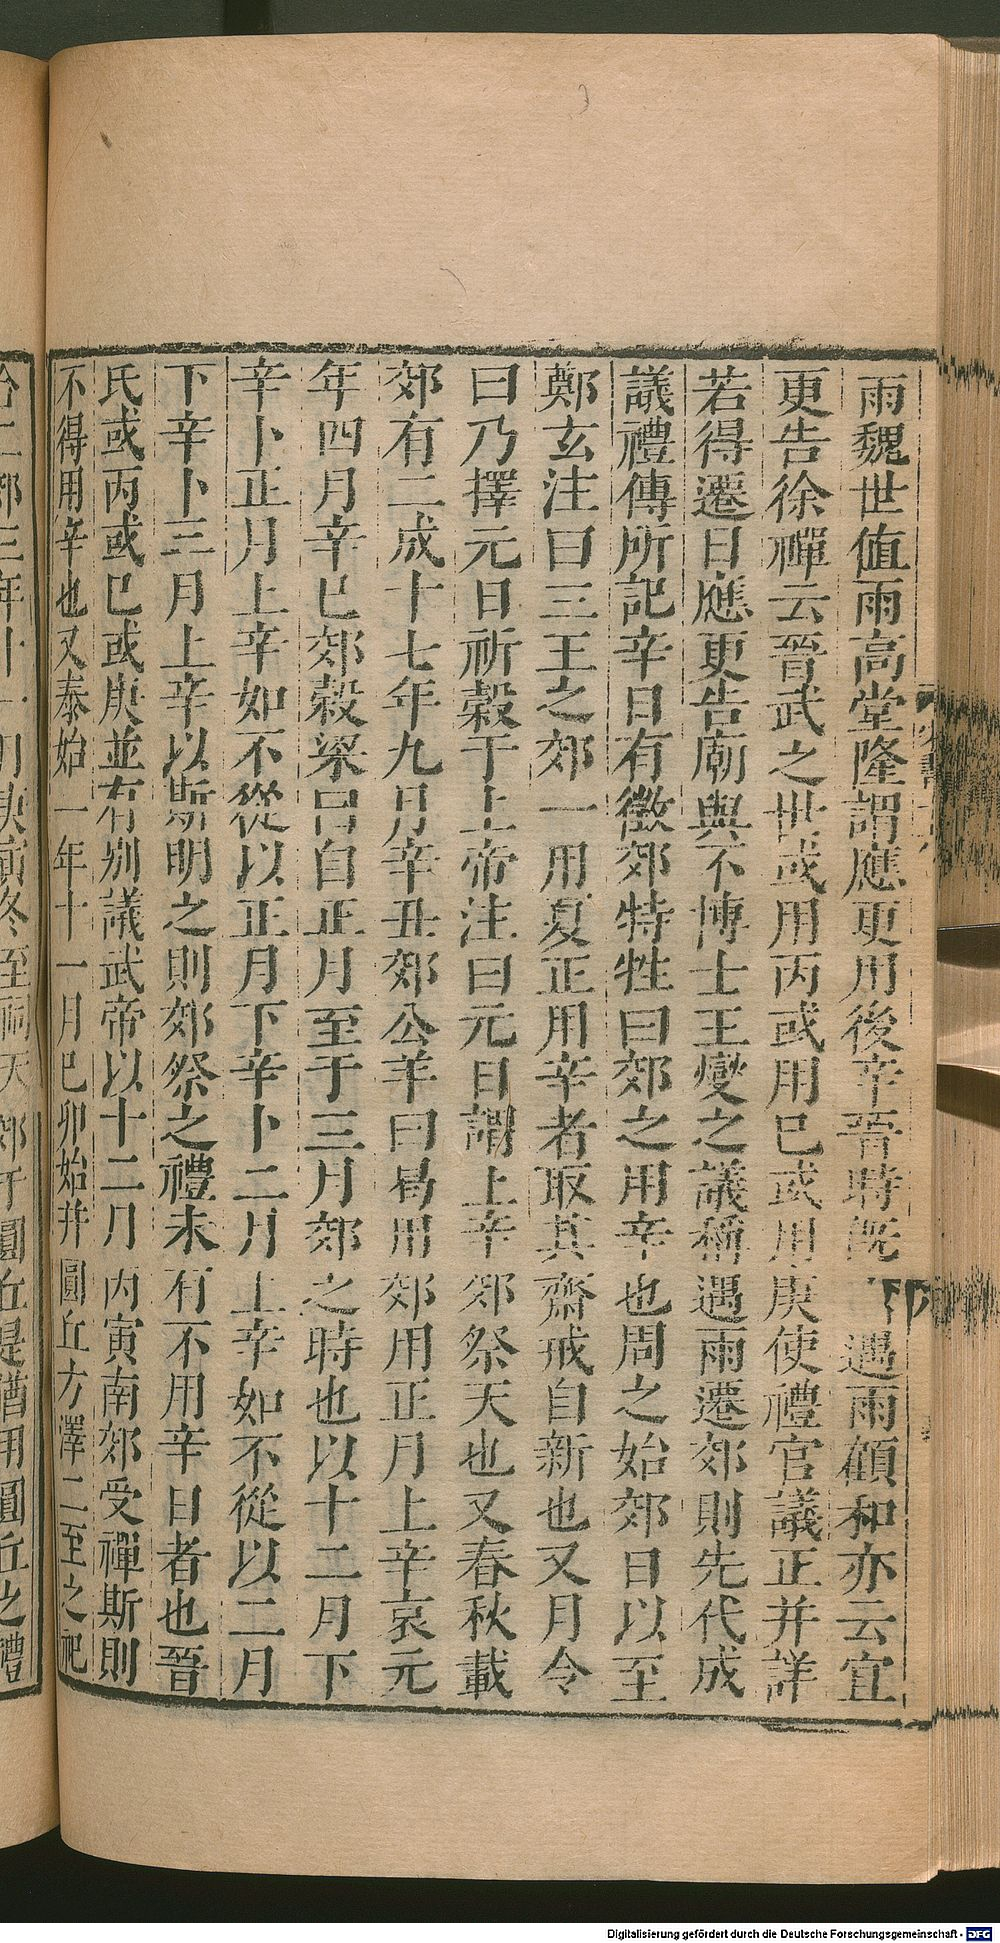 雨魏世值雨高堂隆謂應更用後辛晉時旣 遇雨顧和亦云宜
更告徐禪云晉武之世或用丙或用巳或用庚使禮官議正并詳
若得遷日應更告廟與不博士王燮之議稱遇雨遷郊則先代成
議禮傳所記辛日有徵郊特牲曰郊之用辛也周之始郊日以至
鄭玄注曰三王之郊一用夏正用辛者取其齋戒自新也又月令
曰乃擇元日祈穀于上帝注曰元日謂上辛郊祭天也又春秋載
郊有二成十七年九月辛丑郊公羊曰曷用郊用正月上辛哀元
年四月辛巳郊穀梁曰自正月至于三月郊之時也以十二月下
辛卜正月上辛如不從以正月下辛卜二月上辛如不從以二月
下辛卜三月上辛以斯明之則郊祭之禮未有不用辛日者也晉
氏或丙或巳或庚並有別議武帝以十二月丙寅南郊受禪斯則
不得用辛也又泰始一年十一月巳卯始并圓丘方澤二至之祀
合二郊三年十一月庚寅冬至祠天郊于圓丘是猶用圓丘之禮
Digitalisierung gefördert durch die Deutsche Forschungsgemeinschaft - DFG